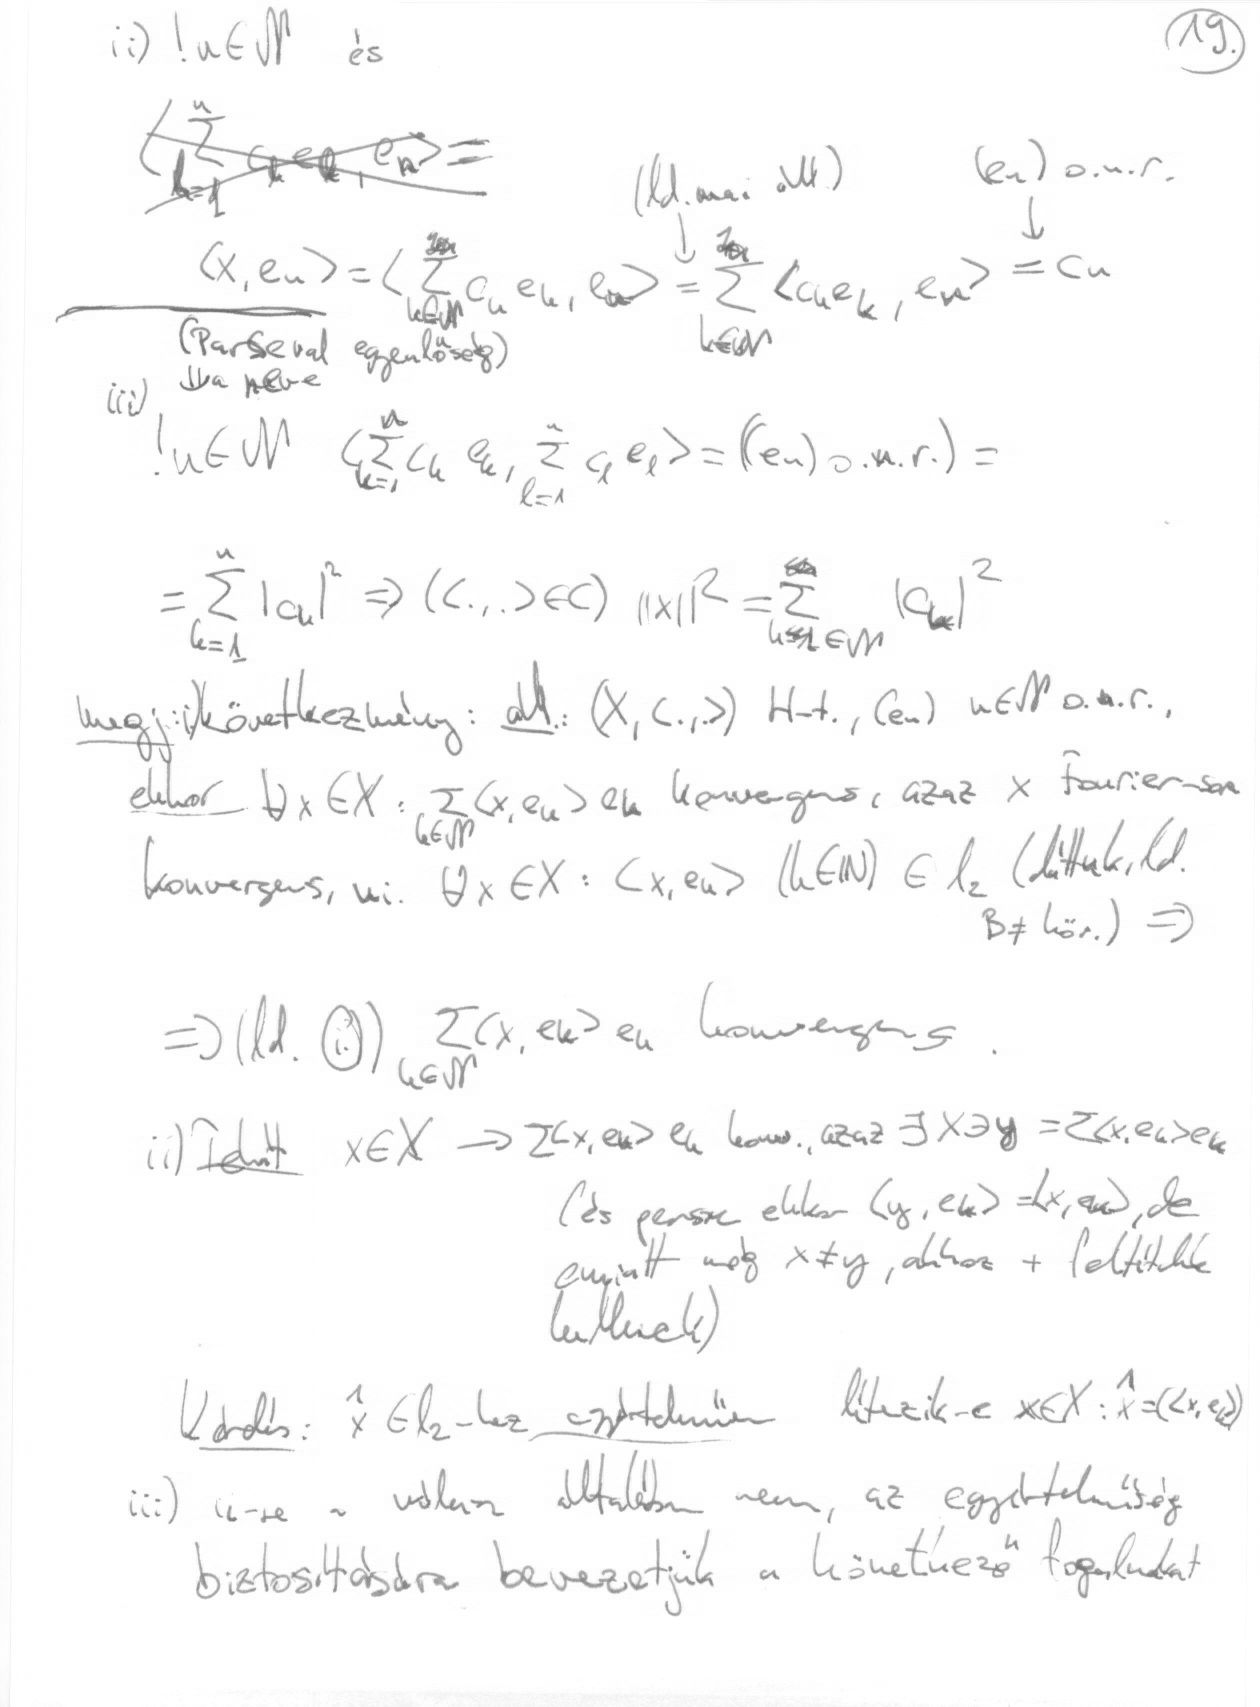 19.
ii) !n∈𝒩 és
⟨∑_{k=1}^{n} c_k e_k, e_n⟩ =
(ld. mai áll.) (e_n) o.n.r.
⟨x, e_n⟩ = ⟨∑_{k∈𝒩} c_k e_k, e_n⟩ = ∑_{k∈𝒩} ⟨c_k e_k, e_n⟩ = c_n
(Parseval egyenlőség)
a neve
iii)
!n∈𝒩 ⟨∑_{k=1}^{n} c_k e_k, ∑_{l=1}^{n} c_l e_l⟩ = ((e_n) o.n.r.) =
= ∑_{k=1}^{n} |c_k|² ⇒ (⟨.,.⟩∈C) ||x||² = ∑_{k∈𝒩} |c_k|²
megj.: i) következmény: áll.: (X, ⟨.,.⟩) H-t., (e_n) n∈𝒩 o.n.r.,
ekkor ∀x∈X: ∑_{k∈𝒩} ⟨x, e_k⟩ e_k konvergens, azaz x Fourier-sora
konvergens, ui. ∀x∈X: ⟨x, e_k⟩ (k∈ℕ) ∈ l₂ (láttuk, ld.
B≠ köv.) ⇒
⇒ (ld. i)) ∑_{k∈𝒩} ⟨x, e_k⟩ e_k konvergens.
ii) Tehát x∈X → ∑⟨x, e_k⟩ e_k konv., azaz ∃ X∋y = ∑⟨x, e_k⟩e_k
(és persze ekkor ⟨y, e_k⟩ = ⟨x, e_k⟩, de
emiatt még x≠y, ahhoz + feltételek
kellenek)
Kérdés: x̂∈l₂-höz egyértelműen létezik-e x∈X: x̂=(⟨x, e_k⟩)
iii) ii-re a válasz általában nem, az egyértelműség
biztosítására bevezetjük a következő fogalmakat